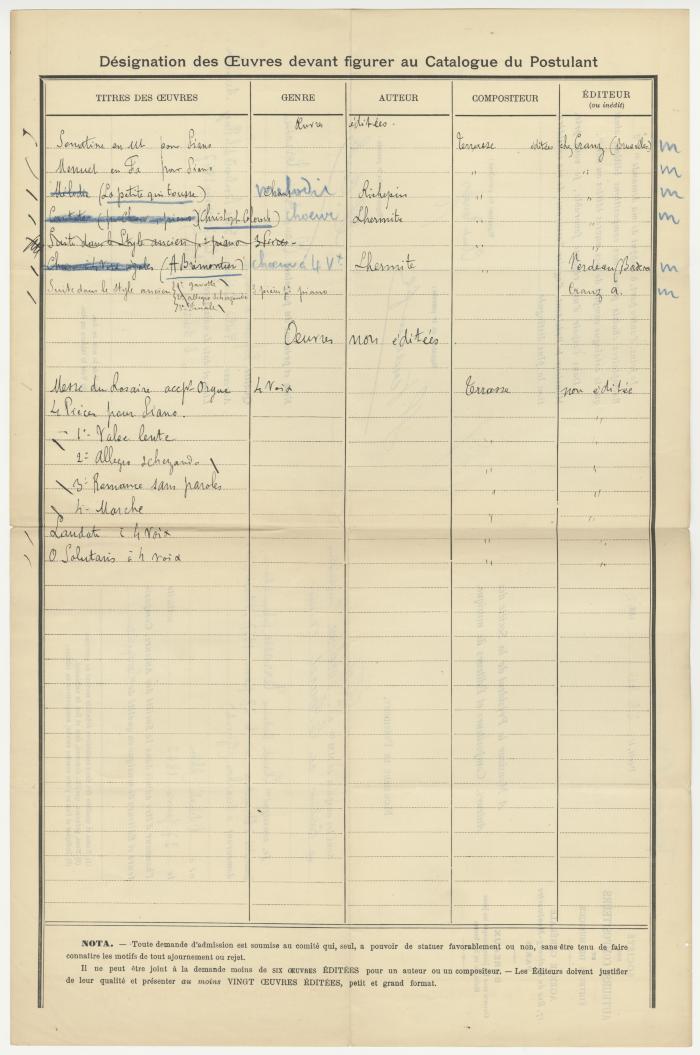 Désignation des Œuvres devant figurer au Catalogue du Postulant
TITRES DES ŒUVRES GENRE AUTEUR COMPOSITEUR ÉDITEUR
(ou inédit)
Œuvres éditées.
Sonatine en ut pour Piano Terrasse éditées chez Cranz (Bruxelles) m
Menuet en Fa pour Piano " " m
Mélodie (La petite qui tousse) Richepin " " m
(Christophe Colomb) choeur Lhermite " " m
Suite dans le Style ancien piano "
(A Bramontin) choeur à 4 Vx Lhermite " m
Suite dans le style ancien 1º gavotte piano Cranz m
2º allegro scherzando
3º Finale
Œuvres non éditées.
Messe du Rosaire accpt Orgue 4 voix Terrasse non éditée
4 Pièces pour Piano. "
1º- Valse lente "
2º Allegro scherzando " "
3º Romance sans paroles " "
4- Marche " "
Laudate à 4 voix " "
O Salutaris à 4 voix " "
NOTA. — Toute demande d'admission est soumise au comité qui, seul, a pouvoir de statuer favorablement ou non, sans être tenu de faire
connaître les motifs de tout ajournement ou rejet.
Il ne peut être joint à la demande moins de SIX ŒUVRES ÉDITÉES pour un auteur ou un compositeur. — Les Éditeurs doivent justifier
de leur qualité et présenter au moins VINGT ŒUVRES ÉDITÉES, petit et grand format.